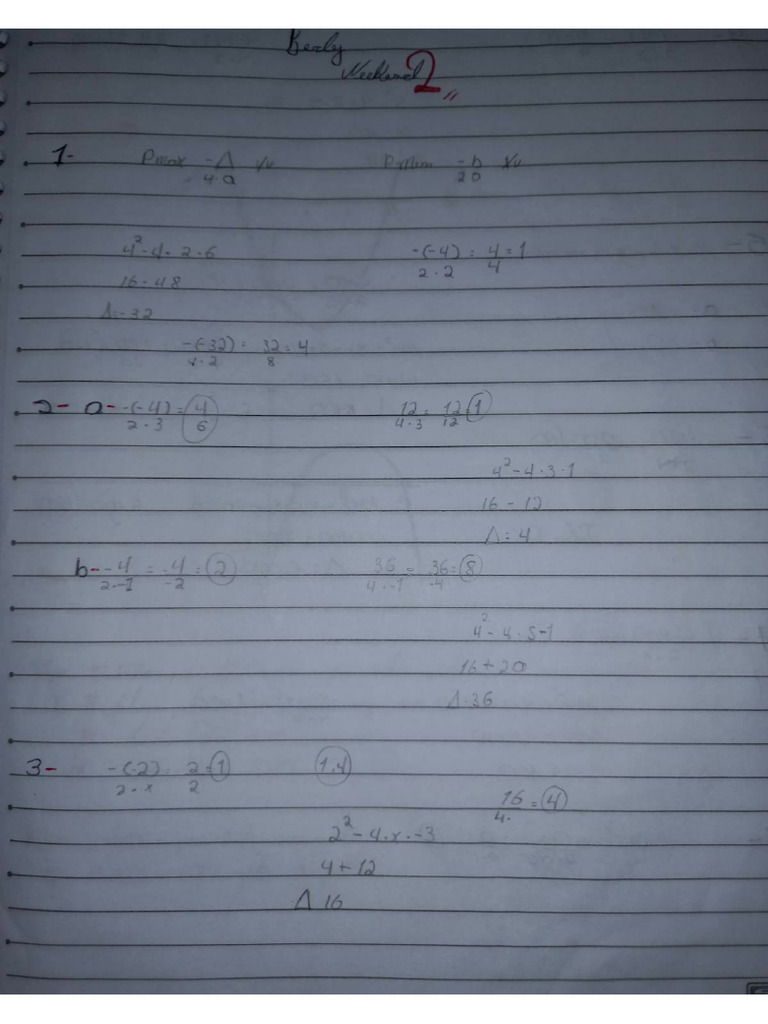 Weekend 2
1- Pmax -Δ/4·a Xv -b/2a Xv
4²-4·2·6 -(-4)/2·2 = 4/4 = 1
16-48
Δ=-32
-(-32)/4·2 = 32/8 = 4
2- a- -(-4)/2·3 = 4/6 12/4·3 = 12/12 = 1
4²-4·3·1
16-12
Δ=4
b- -4/2·-1 = -4/-2 = 2 36/4·-1 = 36/-4 = 8
4²-4·5-1
16+20
Δ·36
3- -(-2)/2·x = 2/2 = 1 1·4
16/4· = 4
2²-4·x·-3
4+12
Δ 16